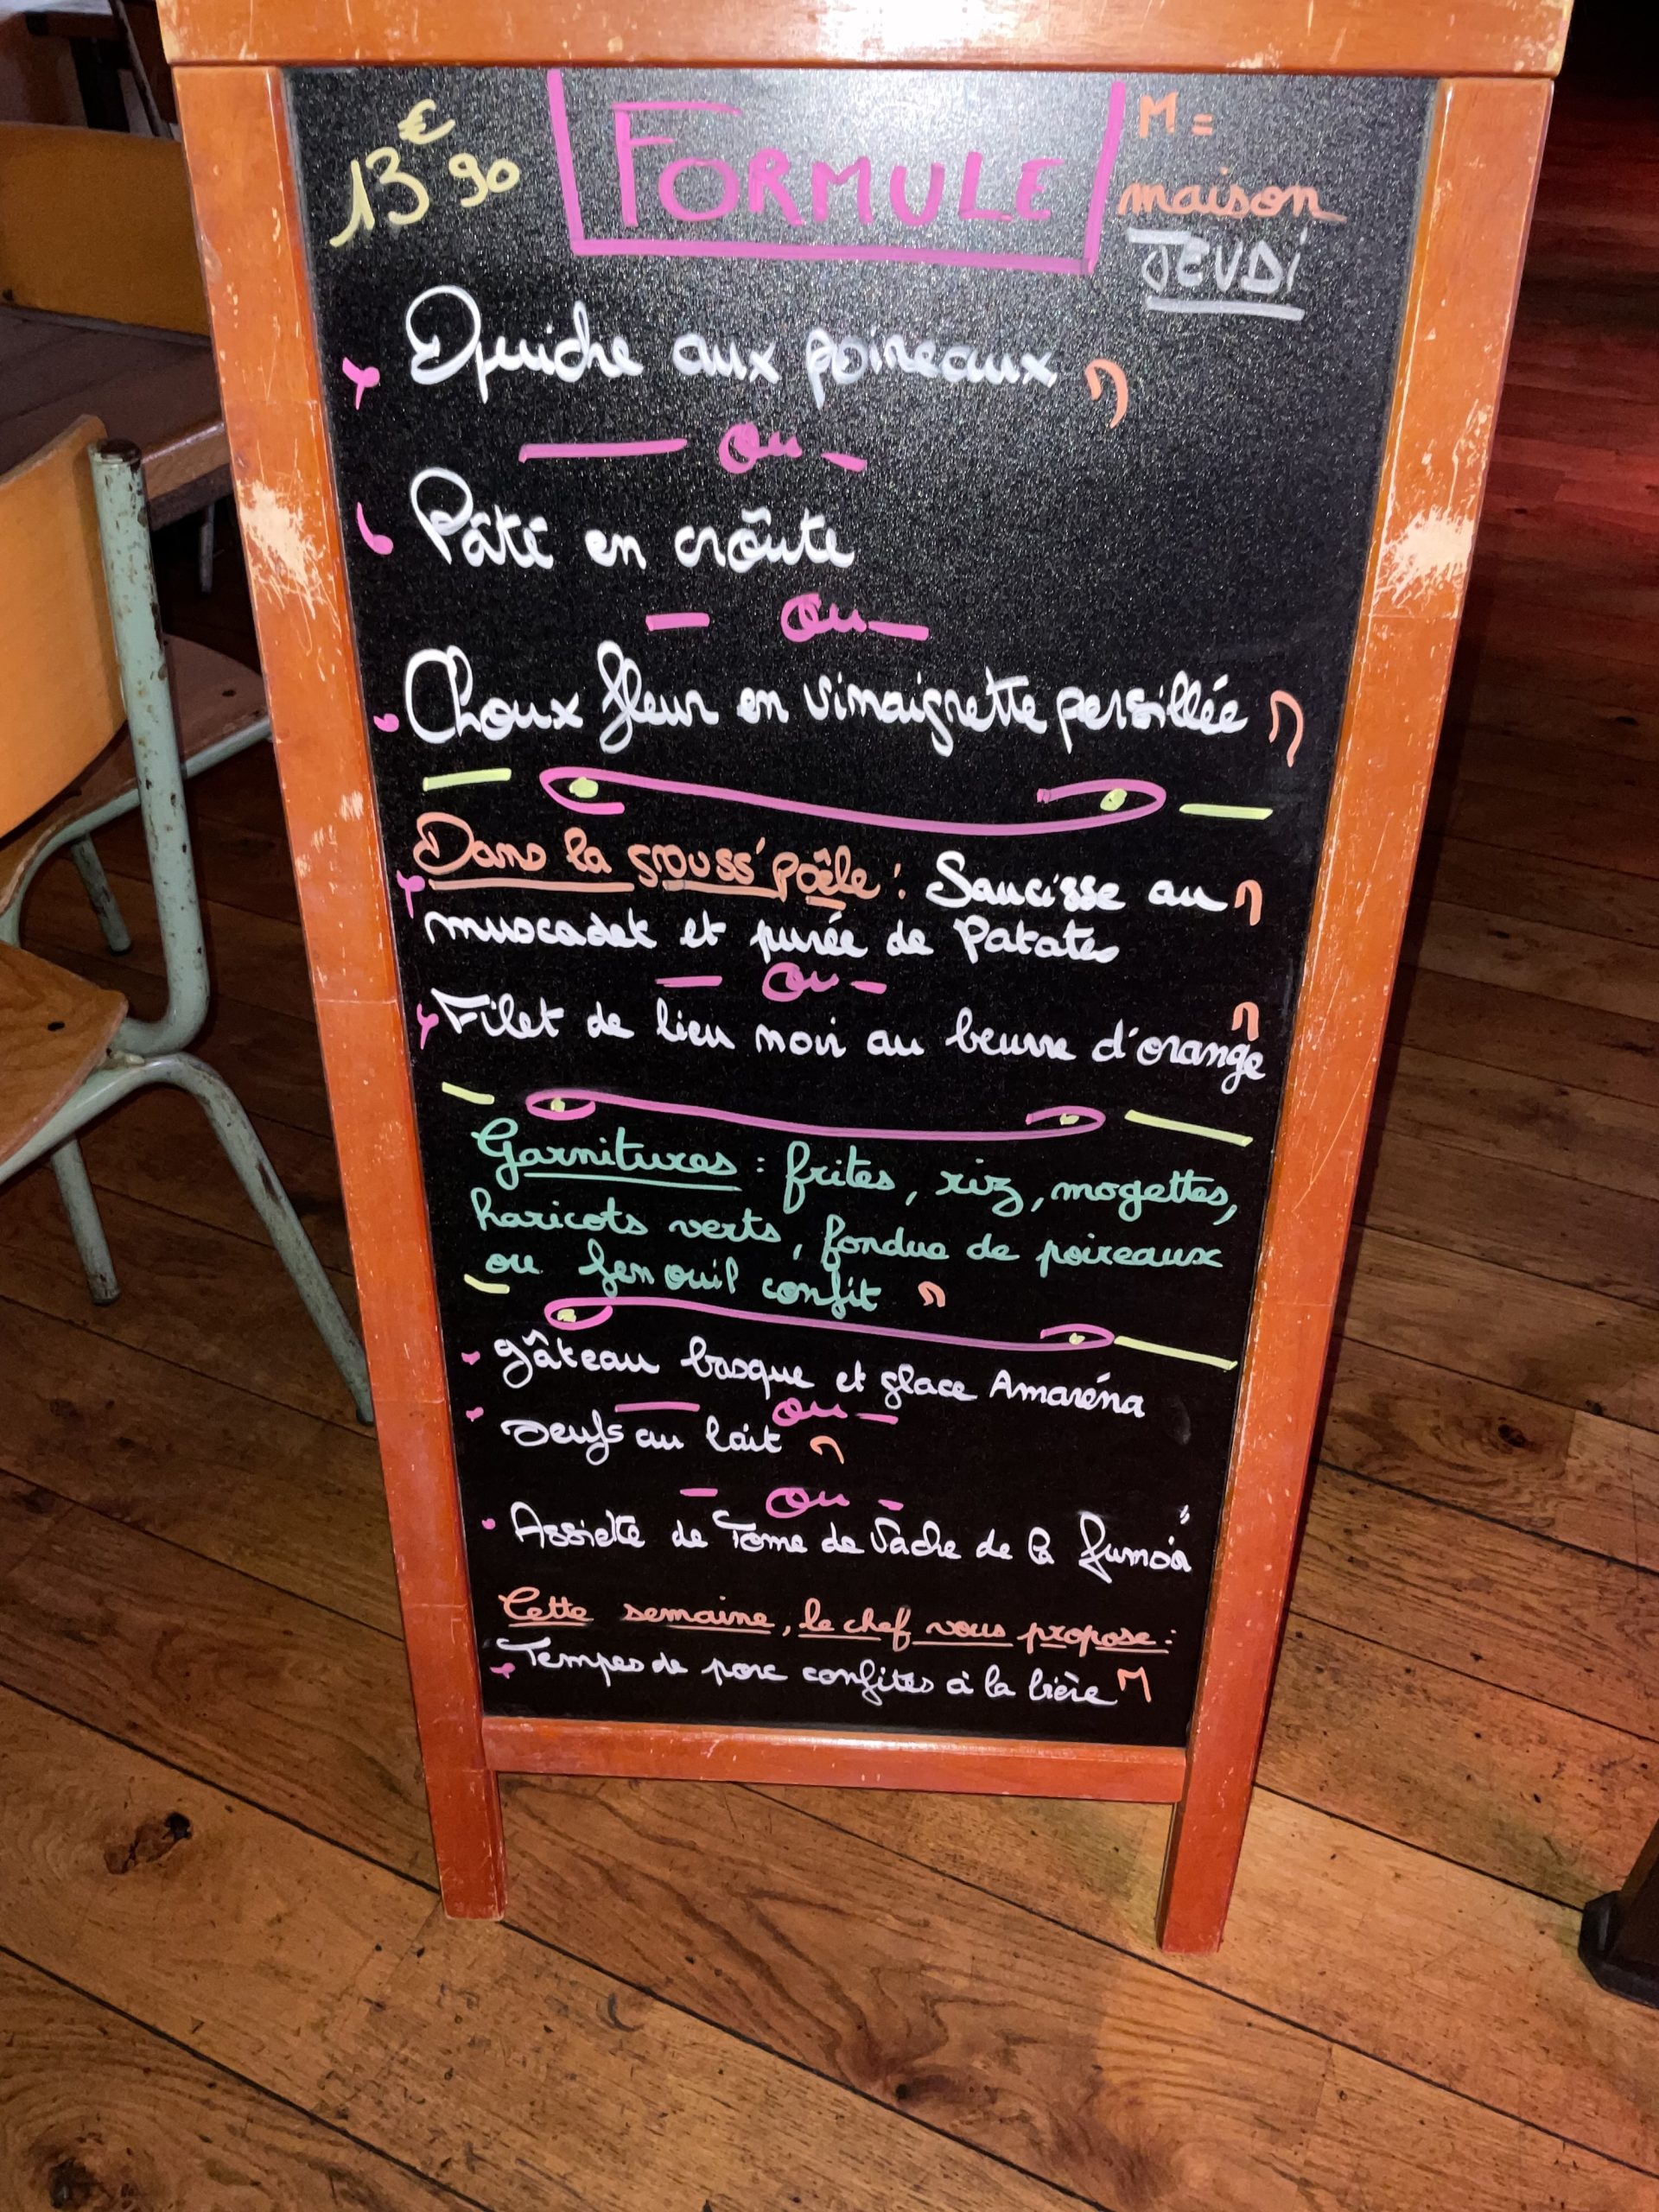 13€90
FORMULE
M =
maison
JEUDi
Quiche aux poireaux M
ou
Pâté en croûte
ou
Choux fleur en vinaigrette persillée M
Dans la grouss'poêle : Saucisse au M
muscadet et purée de Patates
ou
Filet de lieu noir au beurre d'orange M
Garnitures : frites, riz, mogettes,
haricots verts, fondue de poireaux
ou fenouil confit M
gâteau basque et glace Amaréna
ou
oeufs au lait M
ou
Assiette de Tome de Vache de la
Cette semaine, le chef vous propose :
Tempes de porc confites à la bière M